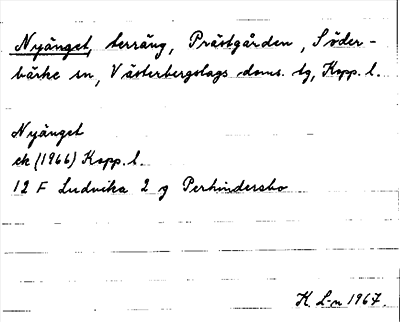 Nyänget, terräng, Prästgården, Söder-
bärke sn, Västerbergslags doms. tg, Kopp. l.
Nyänget
ek (1966) Kopp. l.
12 F Ludvika 2 g Perhindersbo
K. L-n 1967.